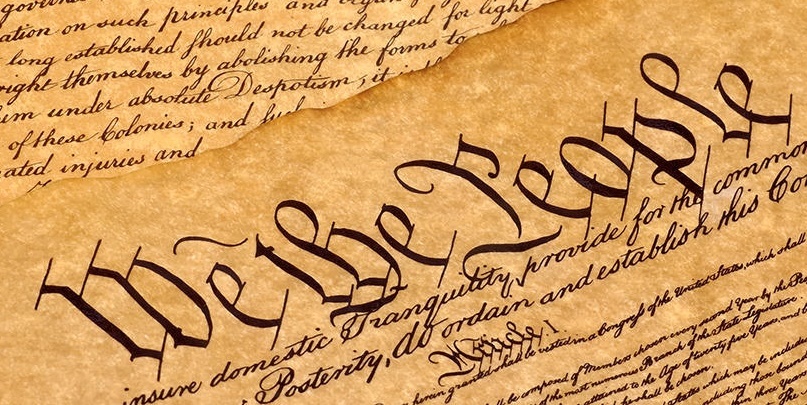 ation on such principles and
long established should not be changed for light
right themselves by abolishing the forms to
under absolute Despotism ; it
of these Colonies ; and
ated injuries and
We the People
insure domestic Tranquility, provide for the common
Posterity, do ordain and establish this
Article I.
herein granted shall be vested in a Congress of the United States, which shall
shall be composed of Members chosen every second Year by the
of the most numerous Branch of the State Legislature
attained to the Age of twenty five Years, and
shall be chosen.
States which may be